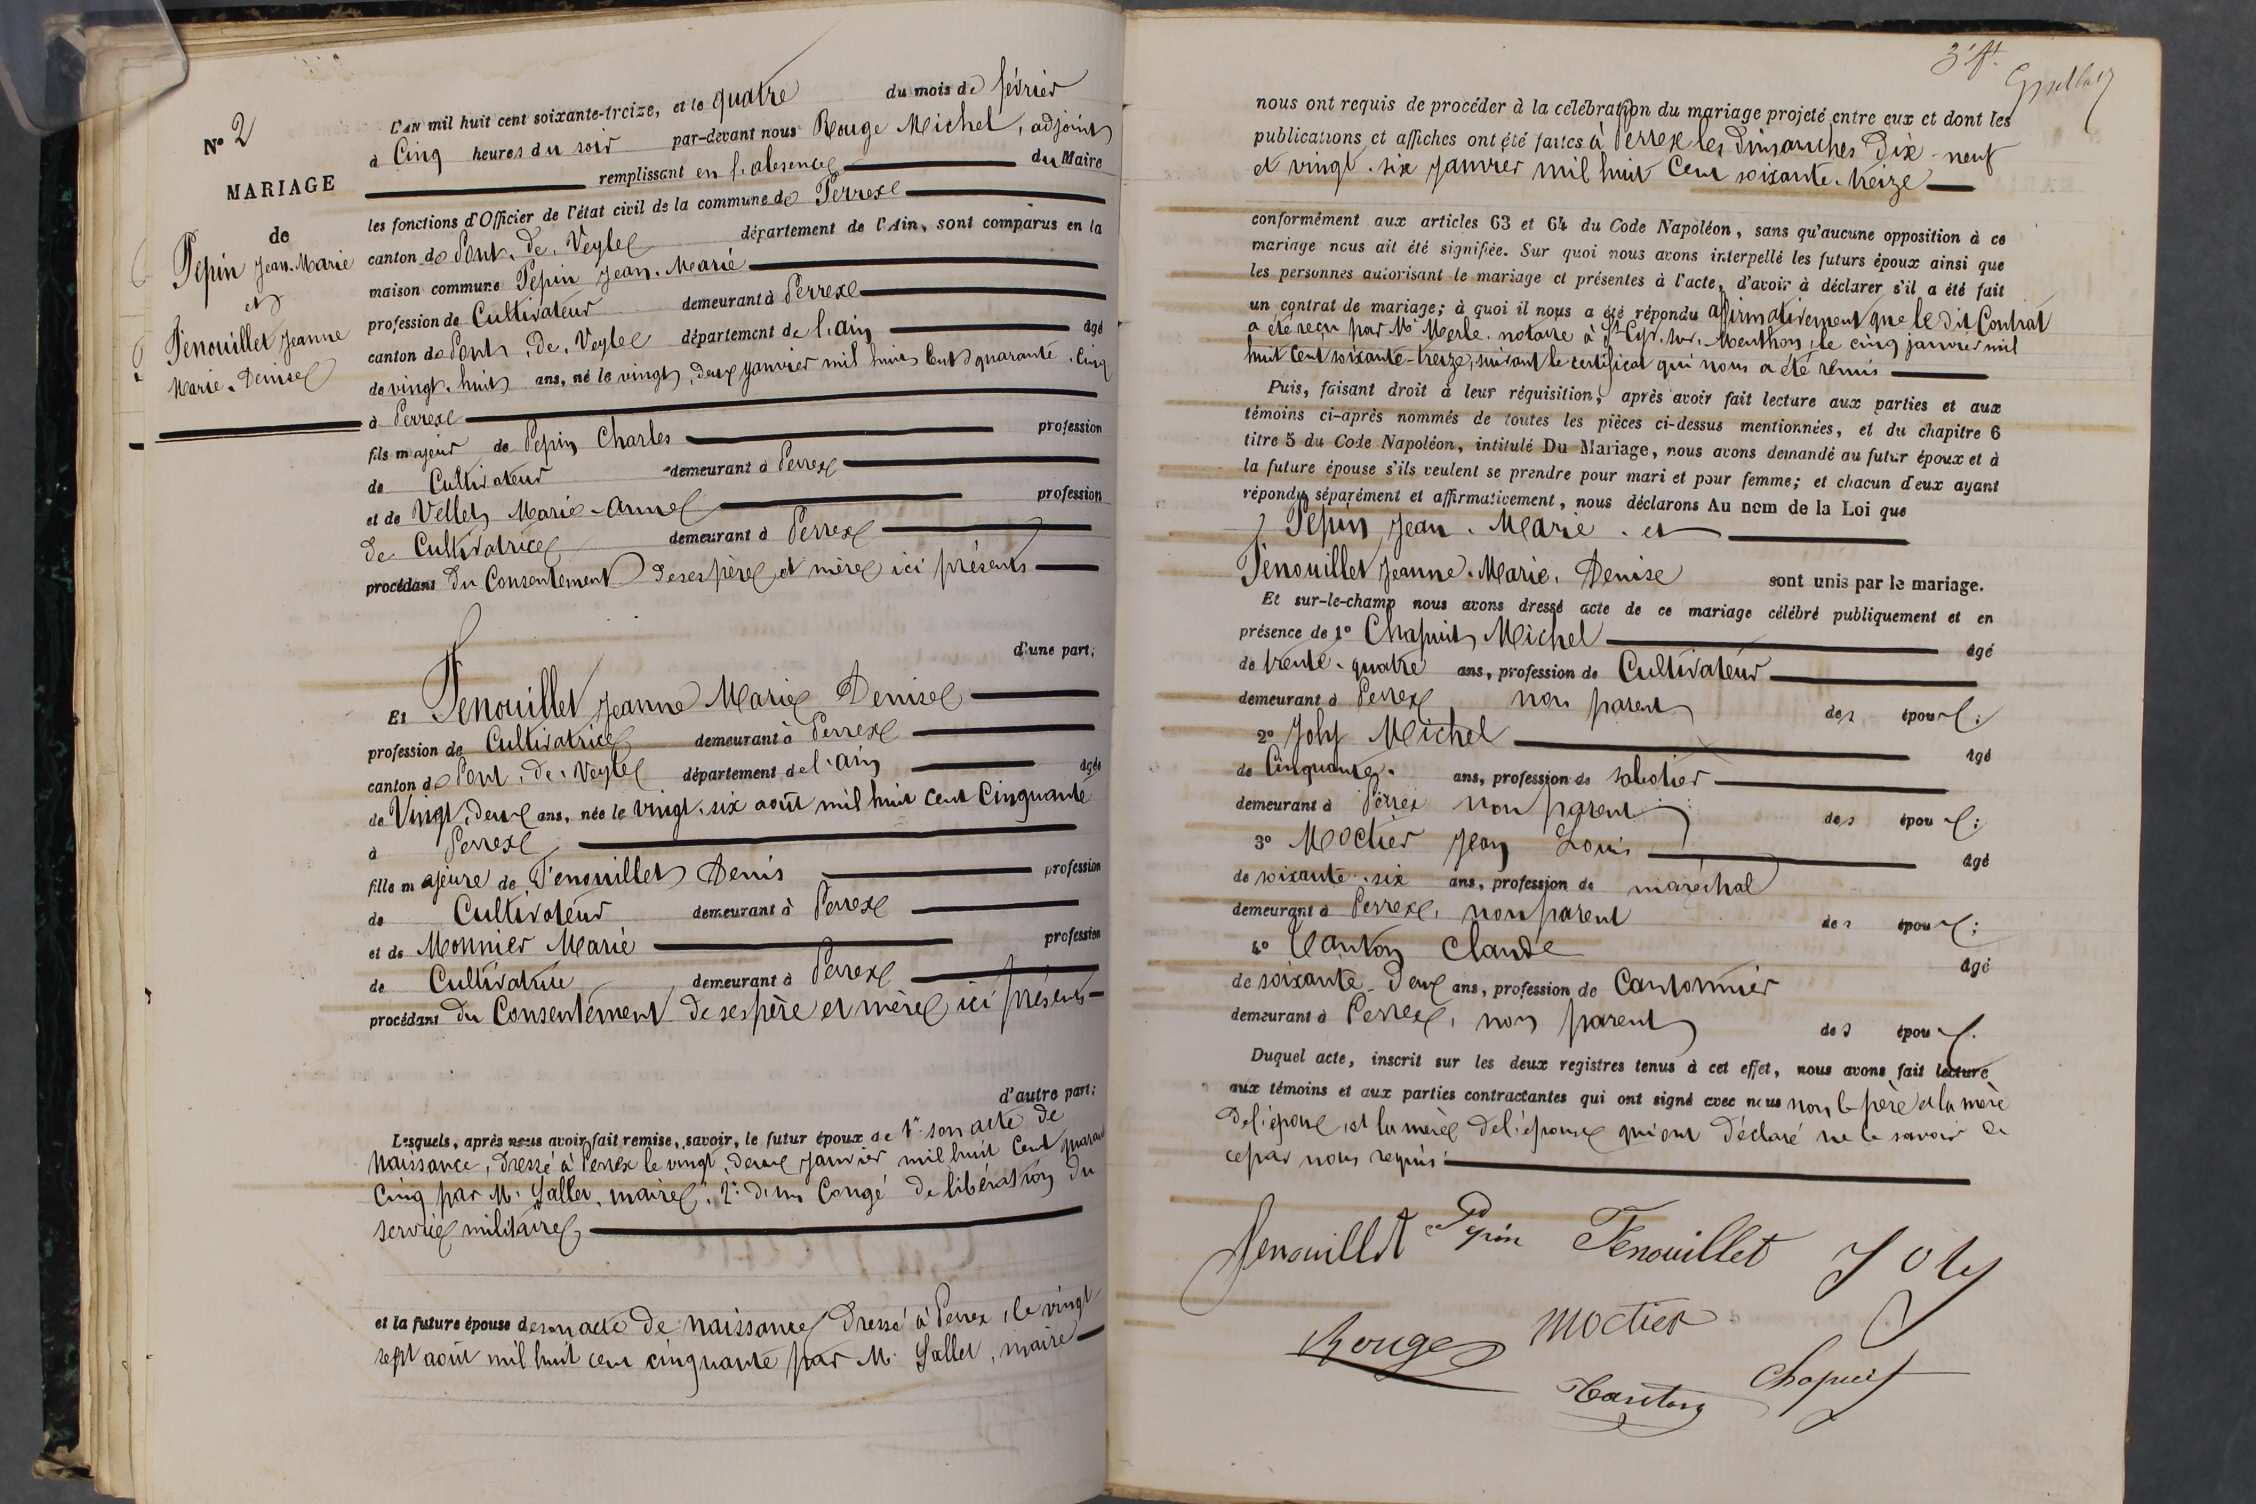 N° 2
MARIAGE
de
Pepin Jean-Marie
et
Fenouillet Jeanne
Marie-Denise
L'AN mil huit cent soixante-treize, et le quatre du mois de février
à Cinq heures du soir par-devant nous Rouge Michel, adjoint
remplissant en l'absence du Maire
les fonctions d'Officier de l'état civil de la commune de Perrex
canton de Pont-de-Veyle département de l'Ain, sont comparus en la
maison commune Pepin Jean-Marie
profession de Cultivateur demeurant à Perrex
canton de Pont-de-Veyle département de l'ain âgé
de vingt-huit ans, né le vingt-deux janvier mil huit Cent quarante-cinq
à Perrex
fils majeur de Pepin Charles profession
de Cultivateur demeurant à Perrex
et de Vellet Marie-Anne profession
de Cultivatrice demeurant à Perrex
procédant du Consentement de ses père et mère ici présents
d'une part;
Et Fenouillet Jeanne Marie Denise
profession de Cultivatrice demeurant à Perrex
canton de Pont-de-Veyle département de l'ain âgée
de Vingt-deux ans, née le vingt-six août mil huit cent Cinquante
à Perrex
fille majeure de Fenouillet Denis profession
de Cultivateur demeurant à Perrex
et de Monnier Marie profession
de Cultivatrice demeurant à Perrex
procédant du Consentement de ses père et mère ici présents
d'autre part;
Lesquels, après nous avoir fait remise, savoir, le futur époux de 1° son acte de
naissance, dressé à Perrex le vingt-deux janvier mil huit Cent quarante
Cinq par M. Sallet, maire; 2° d'un Congé de libération du
service militaire
et la future épouse de son acte de naissance dressé à Perrex, le vingt-
sept août mil huit cent cinquante par M. Sallet, maire
3e ft.
nous ont requis de procéder à la célébration du mariage projeté entre eux et dont les
publications et affiches ont été faites à Perrex les Dimanches Dix-neuf
et vingt-six janvier mil huit Cent soixante-treize
conformément aux articles 63 et 64 du Code Napoléon, sans qu'aucune opposition à ce
mariage nous ait été signifiée. Sur quoi nous avons interpellé les futurs époux ainsi que
les personnes autorisant le mariage et présentes à l'acte, d'avoir à déclarer s'il a été fait
un contrat de mariage; à quoi il nous a été répondu affirmativement que le dit Contrat
a été reçu par Me Merle, notaire à St Cyr-sur-Menthon, le cinq janvier mil
huit cent soixante-treize, suivant le certificat qui nous a été remis
Puis, faisant droit à leur réquisition, après avoir fait lecture aux parties et aux
témoins ci-après nommés de toutes les pièces ci-dessus mentionnées, et du chapitre 6
titre 5 du Code Napoléon, intitulé Du Mariage, nous avons demandé au futur époux et à
la future épouse s'ils veulent se prendre pour mari et pour femme; et chacun d'eux ayant
répondu séparément et affirmativement, nous déclarons Au nom de la Loi que
Pepin Jean-Marie et
Fenouillet Jeanne-Marie-Denise sont unis par le mariage.
Et sur-le-champ nous avons dressé acte de ce mariage célébré publiquement et en
présence de 1° Chapuit Michel âgé
de trente-quatre ans, profession de Cultivateur
demeurant à Perrex non parent des époux;
2° Joly Michel âgé
de Cinquante ans, profession de sabotier
demeurant à Perrex non parent des époux;
3° Moctier Jean Louis âgé
de soixante-six ans, profession de maréchal
demeurant à Perrex, non parent des époux;
4° Canton Claude âgé
de soixante-deux ans, profession de Cantonnier
demeurant à Perrex, non parent des époux.
Duquel acte, inscrit sur les deux registres tenus à cet effet, nous avons fait lecture
aux témoins et aux parties contractantes qui ont signé avec nous non le père et la mère
de l'époux, et la mère de l'épouse qui ont déclaré ne le savoir de
ce par nous requis
Fenouillet Pepin Fenouillet Joly
Rouge Moctier
Canton Chapuit